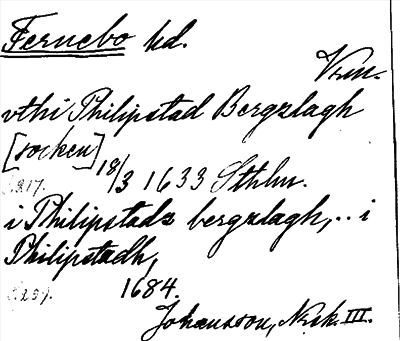 Fernebo hd.
Vrm.
vthi Philipstad Bergzlagh
[socken] 18/3 1633 Sthlm.
S. 217.
i Philipstadz bergzlagh, .. i
Philipstadh,
1684.
S. 259.
Johansson, Norsk. III.